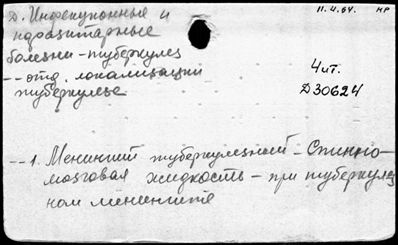 Д. Инфекционные и
11.4.64. МР
паразитарные
болезни – туберкулез
-- отд. локализации
туберкулеза
Чит.
Д30624
-- 1. Менингит туберкулезный – Спинно-
мозговая жидкость – при туберкулез
ном менингите